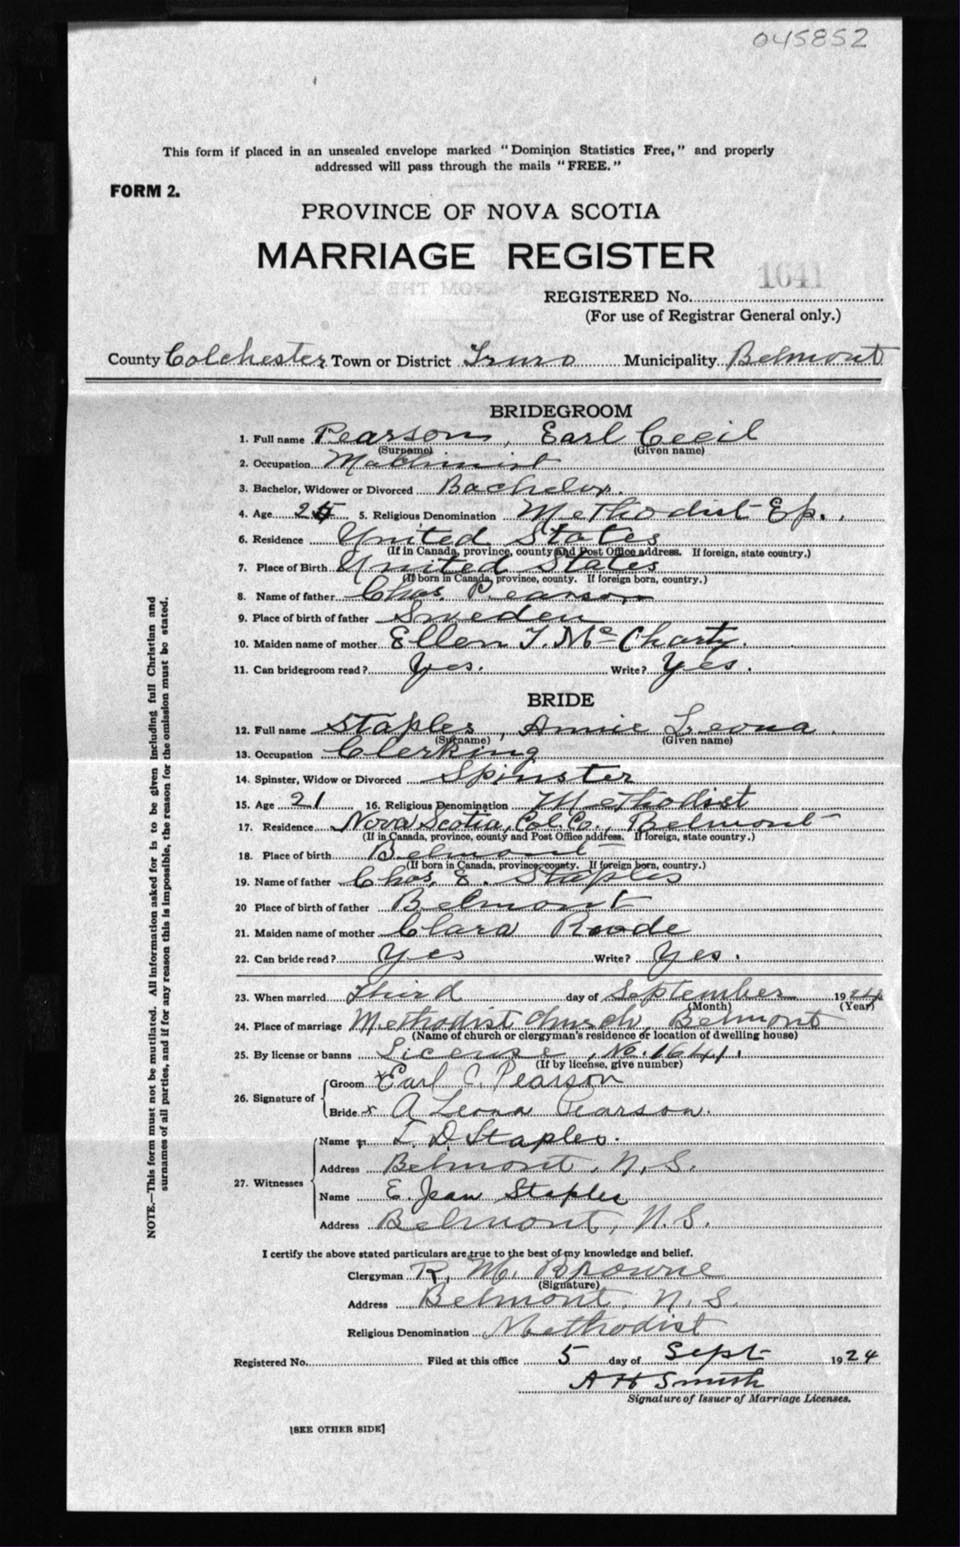 045852
This form if placed in an unsealed envelope marked "Dominion Statistics Free," and properly
addressed will pass through the mails "FREE."
FORM 2.
PROVINCE OF NOVA SCOTIA
MARRIAGE REGISTER
1641
REGISTERED No.
(For use of Registrar General only.)
County Colchester Town or District Truro Municipality Belmont
BRIDEGROOM
1. Full name Pearson, Earl Cecil
(Surname) (Given name)
2. Occupation Machinist
3. Bachelor, Widower or Divorced Bachelor.
4. Age 25 5. Religious Denomination Methodist Ep.
6. Residence United States
(If in Canada, province, county and Post Office address. If foreign, state country.)
7. Place of Birth United States
(If born in Canada, province, county. If foreign born, country.)
8. Name of father Chas. Pearson
9. Place of birth of father Sweden
10. Maiden name of mother Ellen T. Mc Charty.
11. Can bridegroom read? Yes. Write? Yes.
BRIDE
12. Full name Staples, Annie Leona.
(Surname) (Given name)
13. Occupation Clerking
14. Spinster, Widow or Divorced Spinster
15. Age 21 16. Religious Denomination Methodist
17. Residence Nova Scotia, Col. Co., Belmont
(If in Canada, province, county and Post Office address. If foreign, state country.)
18. Place of birth Belmont
(If born in Canada, province, county. If foreign born, country.)
19. Name of father Chas. E. Staples
20 Place of birth of father Belmont
21. Maiden name of mother Clara Roode
22. Can bride read? Yes Write? Yes.
23. When married Third day of September 1924
(Month) (Year)
24. Place of marriage Methodist Church, Belmont
(Name of church or clergyman's residence or location of dwelling house)
25. By license or banns License, No. 1641.
(If by license, give number)
26. Signature of
Groom x Earl C. Pearson
Bride x A Leona Pearson.
27. Witnesses
Name L. D. Staples.
Address Belmont, N.S.
Name E. Jean Staples
Address Belmont, N.S.
I certify the above stated particulars are true to the best of my knowledge and belief.
Clergyman R. M. Browne
(Signature)
Address Belmont, N.S.
Religious Denomination Methodist
Registered No. Filed at this office 5 day of Sept 1924
A H Smith
Signature of Issuer of Marriage Licenses.
[SEE OTHER SIDE]
NOTE.—This form must not be mutilated. All information asked for is to be given including full Christian and
surnames of all parties, and if for any reason this is impossible, the reason for the omission must be stated.